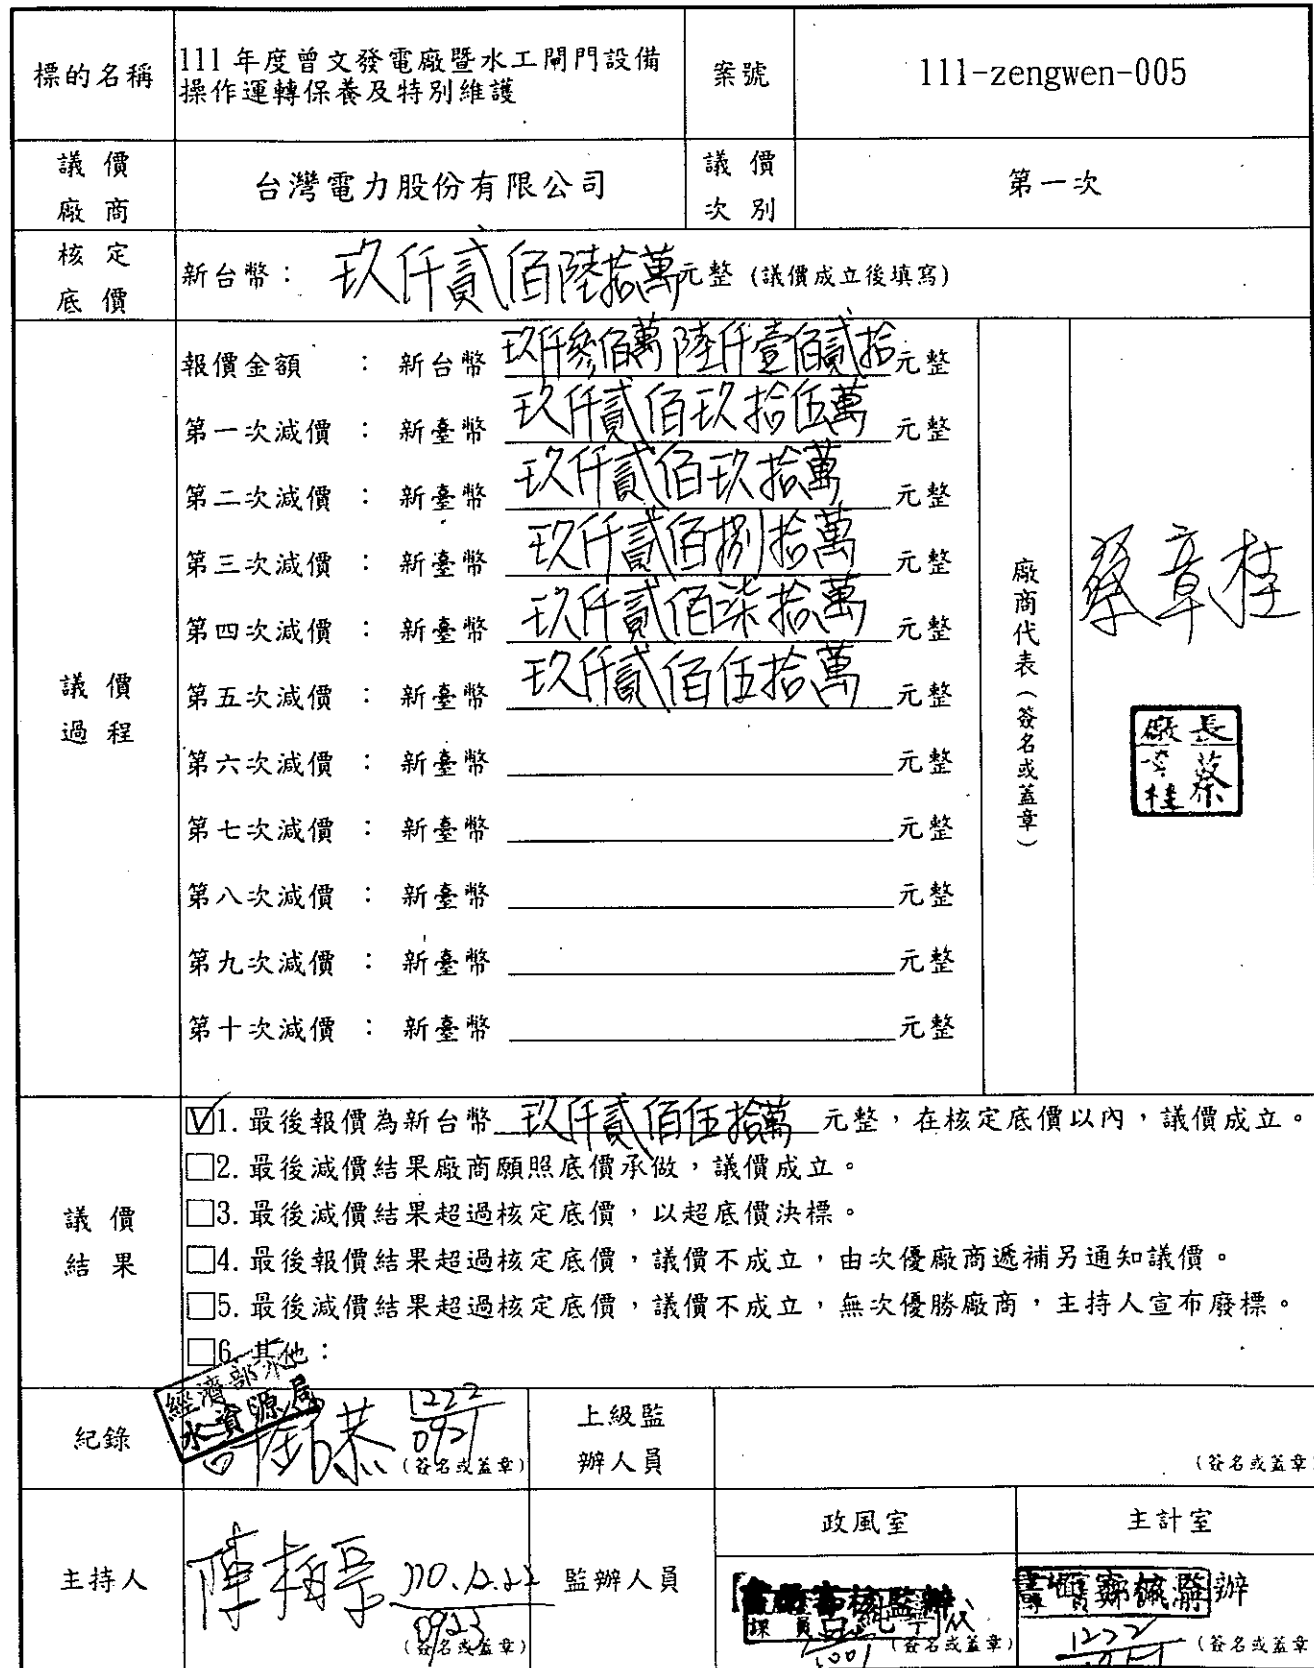 標的名稱 111 年度曾文發電廠暨水工閘門設備 案號 111-zengwen-005
操作運轉保養及特別維護
議價廠商 台灣電力股份有限公司 議價次別 第一次
核定底價 新台幣： 玖仟貳佰陸拾萬元整 (議價成立後填寫)
議價過程
報價金額 ： 新台幣 玖仟參佰萬陸仟壹佰貳拾元整
第一次減價 ： 新臺幣 玖仟貳佰玖拾伍萬 元整
第二次減價 ： 新臺幣 玖仟貳佰玖拾萬 元整
第三次減價 ： 新臺幣 玖仟貳佰捌拾萬 元整
第四次減價 ： 新臺幣 玖仟貳佰柒拾萬 元整
第五次減價 ： 新臺幣 玖仟貳佰伍拾萬 元整
第六次減價 ： 新臺幣 元整
第七次減價 ： 新臺幣 元整
第八次減價 ： 新臺幣 元整
第九次減價 ： 新臺幣 元整
第十次減價 ： 新臺幣 元整
廠商代表（簽名或蓋章）
蔡章桂
廠長蔡章桂
議價結果
☑1. 最後報價為新台幣 玖仟貳佰伍拾萬 元整，在核定底價以內，議價成立。
□2. 最後減價結果廠商願照底價承做，議價成立。
□3. 最後減價結果超過核定底價，以超底價決標。
□4. 最後報價結果超過核定底價，議價不成立，由次優廠商遞補另通知議價。
□5. 最後減價結果超過核定底價，議價不成立，無次優勝廠商，主持人宣布廢標。
□6. 其他：
經濟部水
水資源局
紀錄 1222 0921 (簽名或蓋章) 上級監辦人員 (簽名或蓋章
主持人 110.12.22 0923 (簽名或蓋章) 監辦人員
政風室 主計室
監辦 監辦
課員
1001 (簽名或蓋章) 1222 (簽名或蓋章